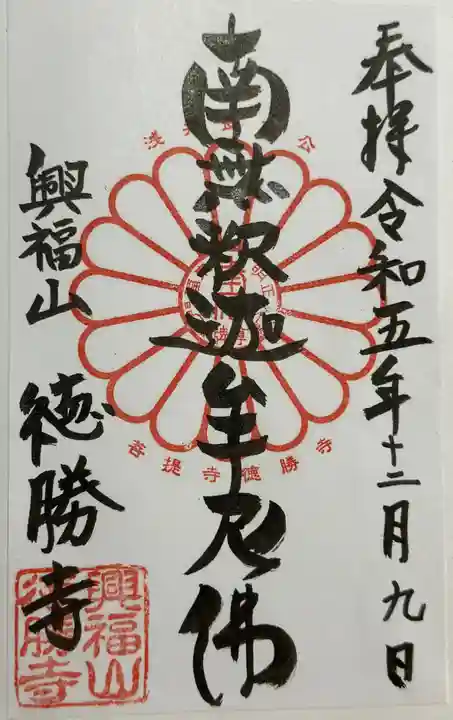 奉拝令和五年十二月九日
南無釈迦牟尼佛
興福山 徳勝寺
菩提寺徳勝寺
興福山
徳勝寺